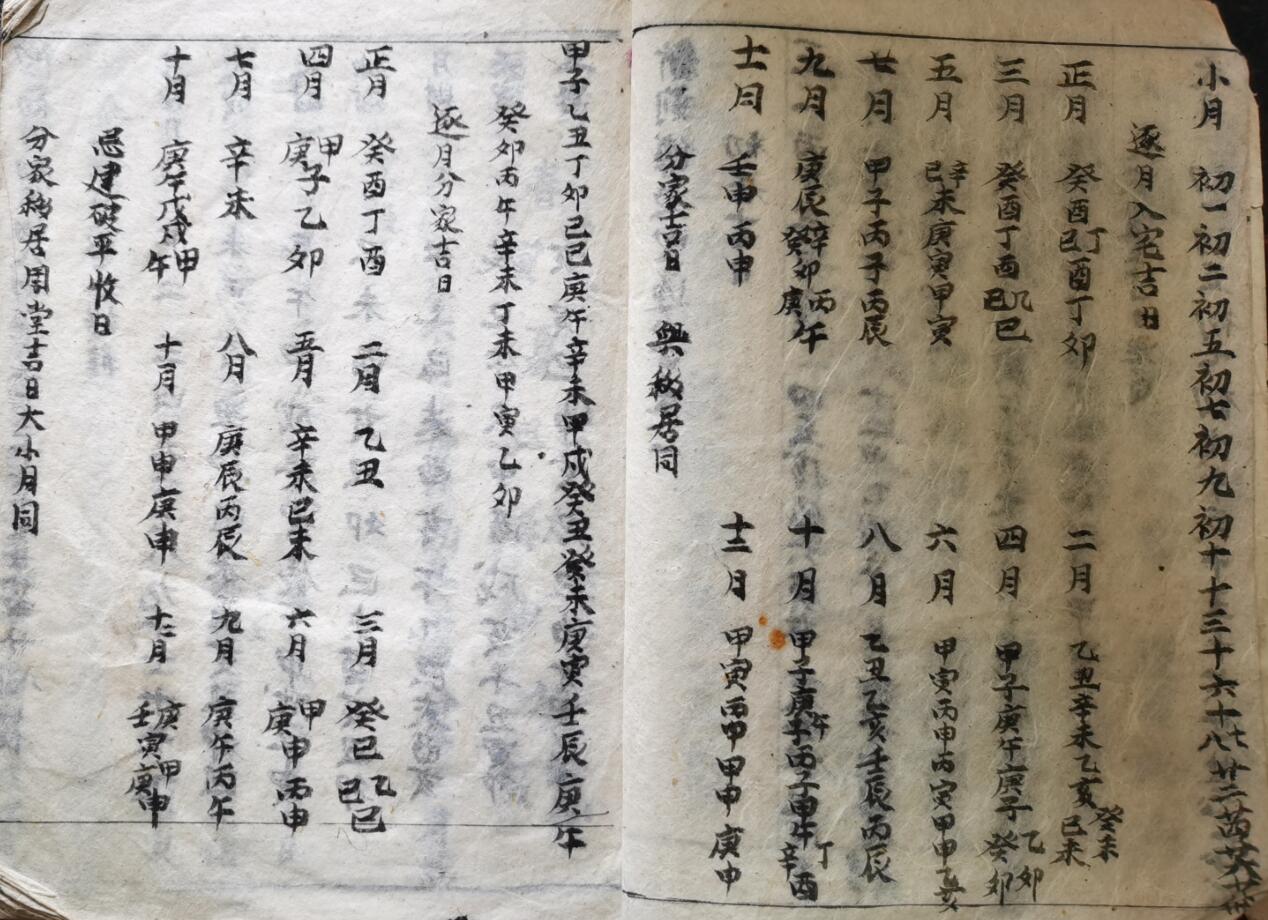 小月 初一初二初五初七初九初十十三十六十七十八廿二
逐月入宅吉日
正月 癸酉丁酉己酉丁卯 二月 乙丑辛未乙亥癸未己未
三月 癸酉丁酉乙巳己巳 四月 甲子庚午庚子乙卯癸卯
五月 辛未己未庚寅甲寅 六月 甲寅丙申丙寅甲申乙亥
七月 甲子丙子丙辰 八月 乙丑乙亥壬辰丙辰
九月 庚辰辛卯癸卯丙午庚午 十月 甲子庚午庚子丙子甲午丁酉辛酉
十一月 壬申丙申 十二月 甲寅丙申甲申庚申
分家吉日 與移居同
甲子乙丑丁卯己巳庚午辛未甲戌癸丑癸未庚寅壬辰庚午
癸卯丙午辛未丁未甲寅乙卯
逐月分家吉日
正月 癸酉丁酉 二月 乙丑 三月 癸巳乙巳己巳
四月 甲子庚子乙卯 五月 辛未己未 六月 甲申庚申丙申
七月 辛未 八月 庚辰丙辰 九月 庚午丙午
十月 庚午戊戌甲午 十一月 甲申庚申 十二月 庚寅壬寅甲申庚申
忌建破平收日
分家移居周堂吉日大小月同